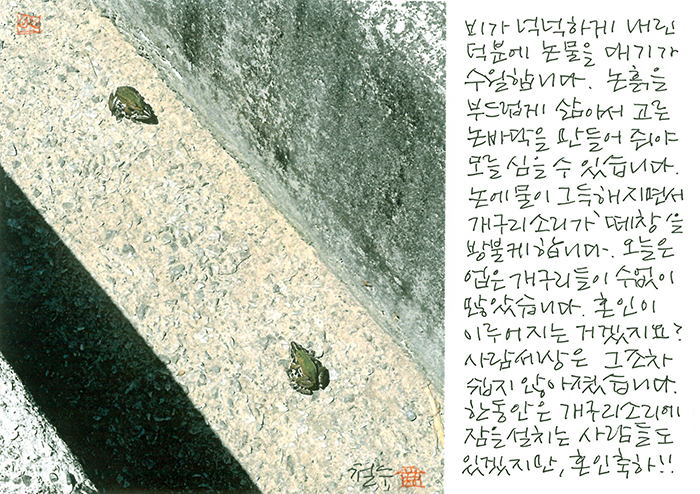 비가 넉넉하게 내린
덕분에 논물을 대기가
수월합니다. 논흙을
부드럽게 삶아서 고른
논바닥을 만들어 줘야
모를 심을 수 있습니다.
논에 물이 그득해지면서
개구리소리가 '떼창'을
방불케합니다. 오늘은
업은 개구리들이 수없이
많았습니다. 혼인이
이루어지는 거겠지요?
사람세상은 그조차
쉽지 않아졌습니다.
한동안은 개구리소리에
잠을 설치는 사람들도
있겠지만, 혼인축하!!
철수